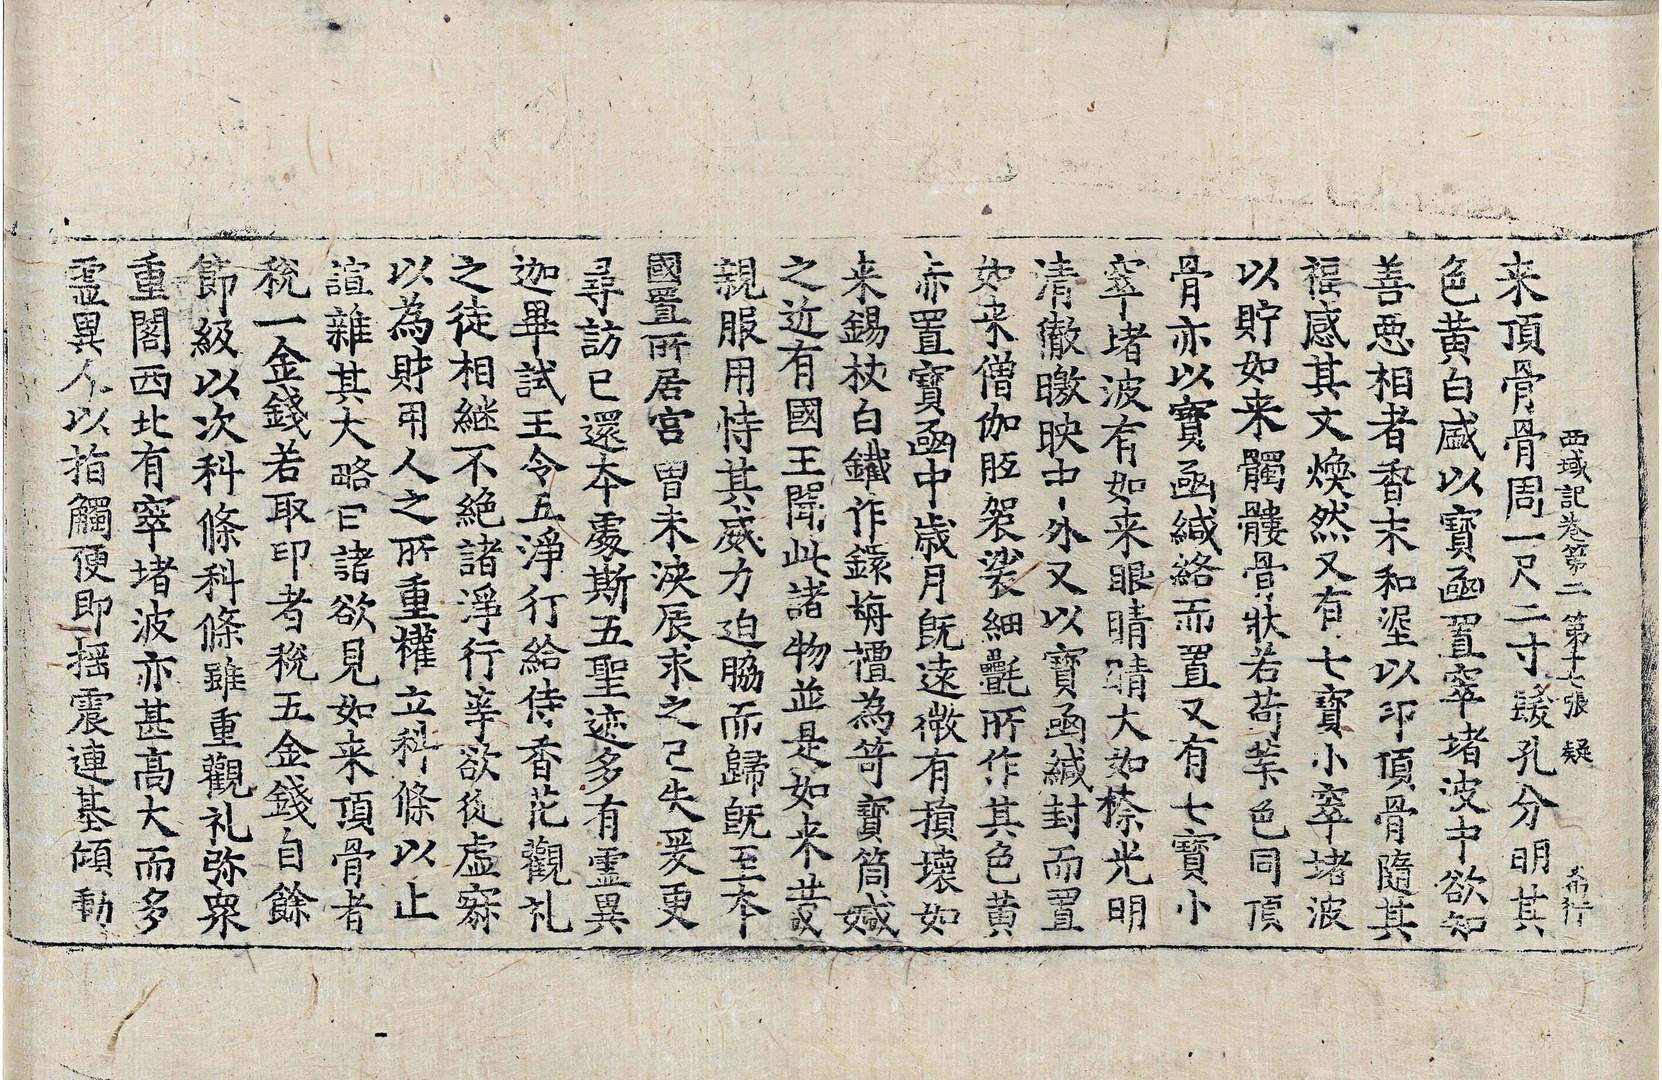 西域記卷第二 第十七張 疑 秊行
来頂骨骨周一尺二寸髮孔分明其
色黃白盛以寶函置窣堵波中欲知
善惡相者香末和埿以印頂骨隨其
福感其文煥然又有七寶小窣堵波
以貯如来髑髏骨狀若荷葉色同頂
骨亦以寶函緘絡而置又有七寶小
窣堵波有如来眼睛睛大如㮈光明
清徹曒映中外又以寶函緘封而置
如来僧伽胝袈裟細㲲所作其色黃
赤置寶函中歲月既遠微有損壞如
来錫杖白鐵作鐶栴檀為笴寶筒緘
之近有國王聞此諸物並是如来昔
親服用恃其威力迫脇而歸既至本
國置所居宮曾未浹辰求之已失爰更
尋訪已還本處斯五聖迹多有靈異
迦畢試王令五淨行給侍香花觀礼
之徒相継不絕諸淨行等欲從虛寂
以為財用人之所重權立科條以止
諠雜其大略曰諸欲見如来頂骨者
稅一金錢若取印者稅五金錢自餘
節級以次科條科條雖重觀礼弥衆
重閣西北有窣堵波亦甚高大而多
靈異人以指觸便即揺震連基傾動